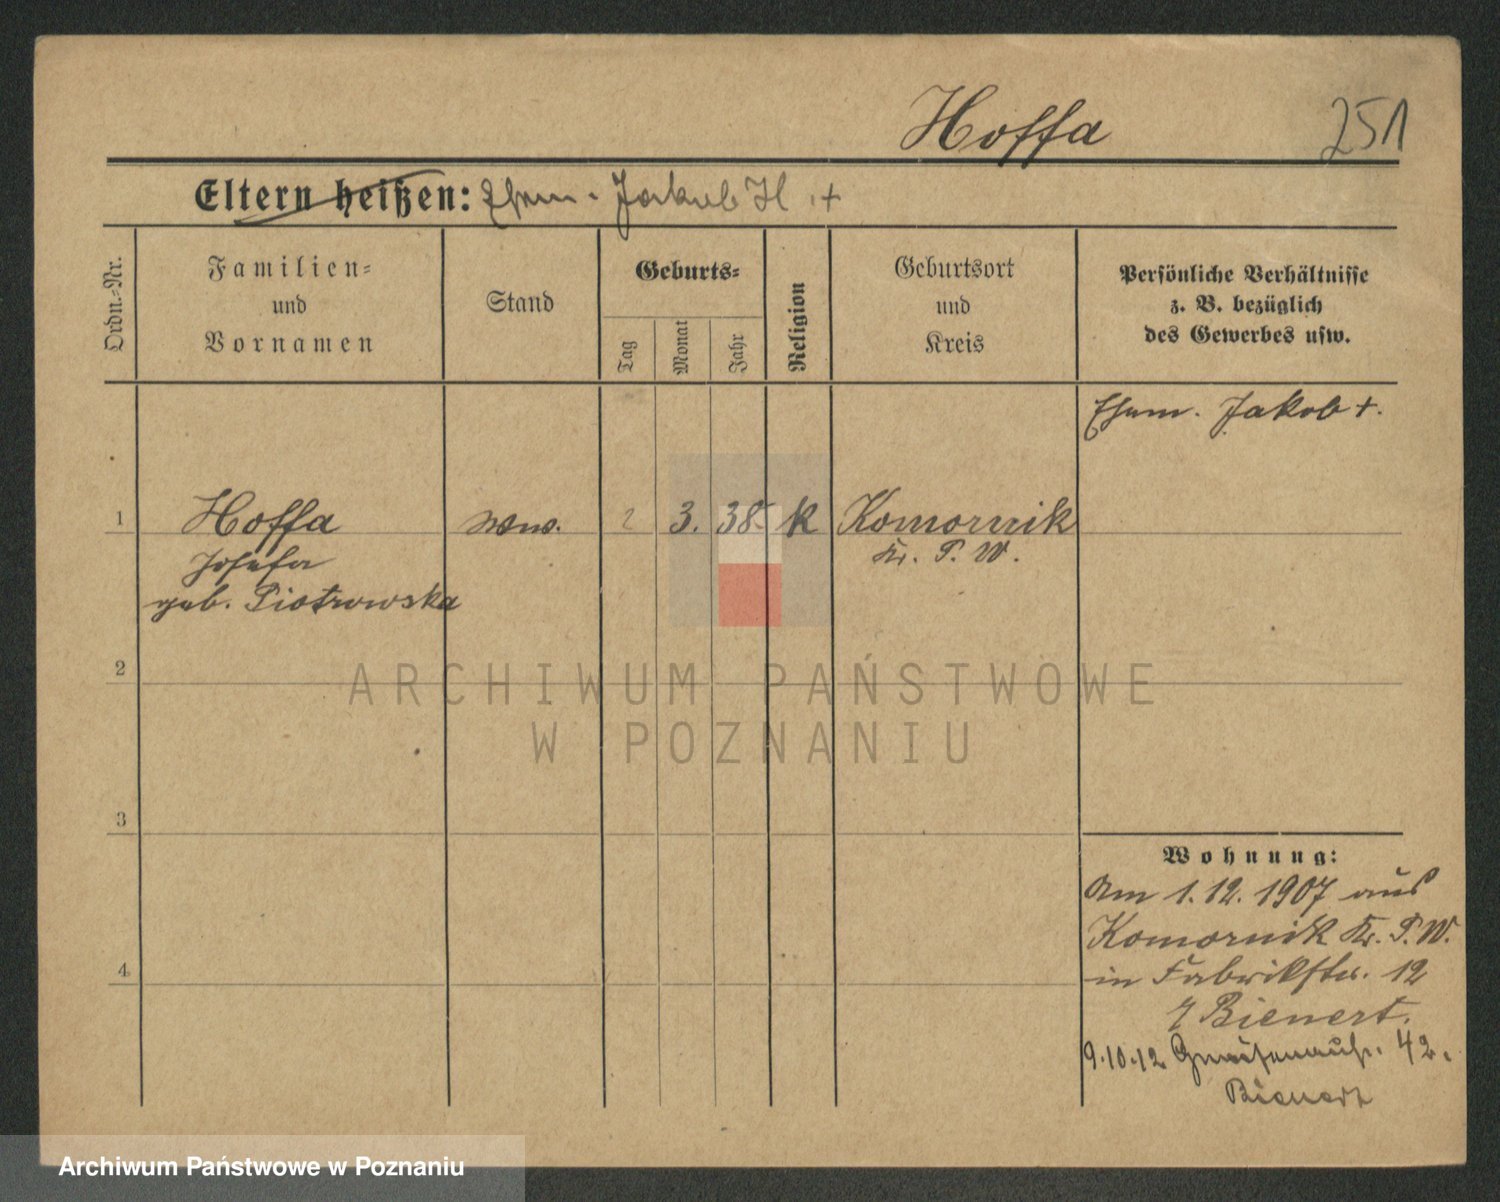 Hoffa 251
Eltern heißen: Ehem. Jakub H. +
Ordn.-Nr.
Familien-
und
Vornamen
Stand
Geburts-
Tag
Monat
Jahr
Religion
Geburtsort
und
Kreis
Persönliche Verhältnisse
z. B. bezüglich
des Gewerbes usw.
Ehem. Jakob +.
1 Hoffa Ww. 2 3. 38. k Komornik
Josefa Kr. P. W.
geb. Piotrowska
2
3
4
Wohnung:
Am 1.12.1907 aus
Komornik Kr. P. W.
in Fabrikstr. 12
Bienert.
9.10.12 Gneisenaustr. 42.
Bienert
ARCHIWUM PAŃSTWOWE
W POZNANIU
Archiwum Państwowe w Poznaniu